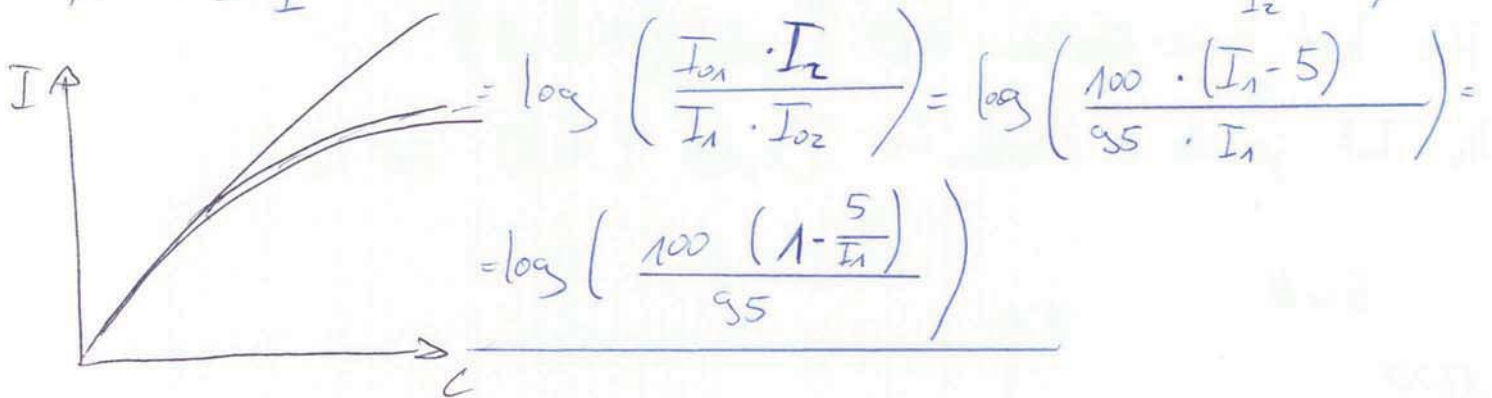 I = log ( I₀₁ · I₂ / I₁ · I₀₂ ) = log ( 100 · (I₁ - 5) / 95 · I₁ ) =
= log ( 100 (1 - 5/I₁) / 95 )
c